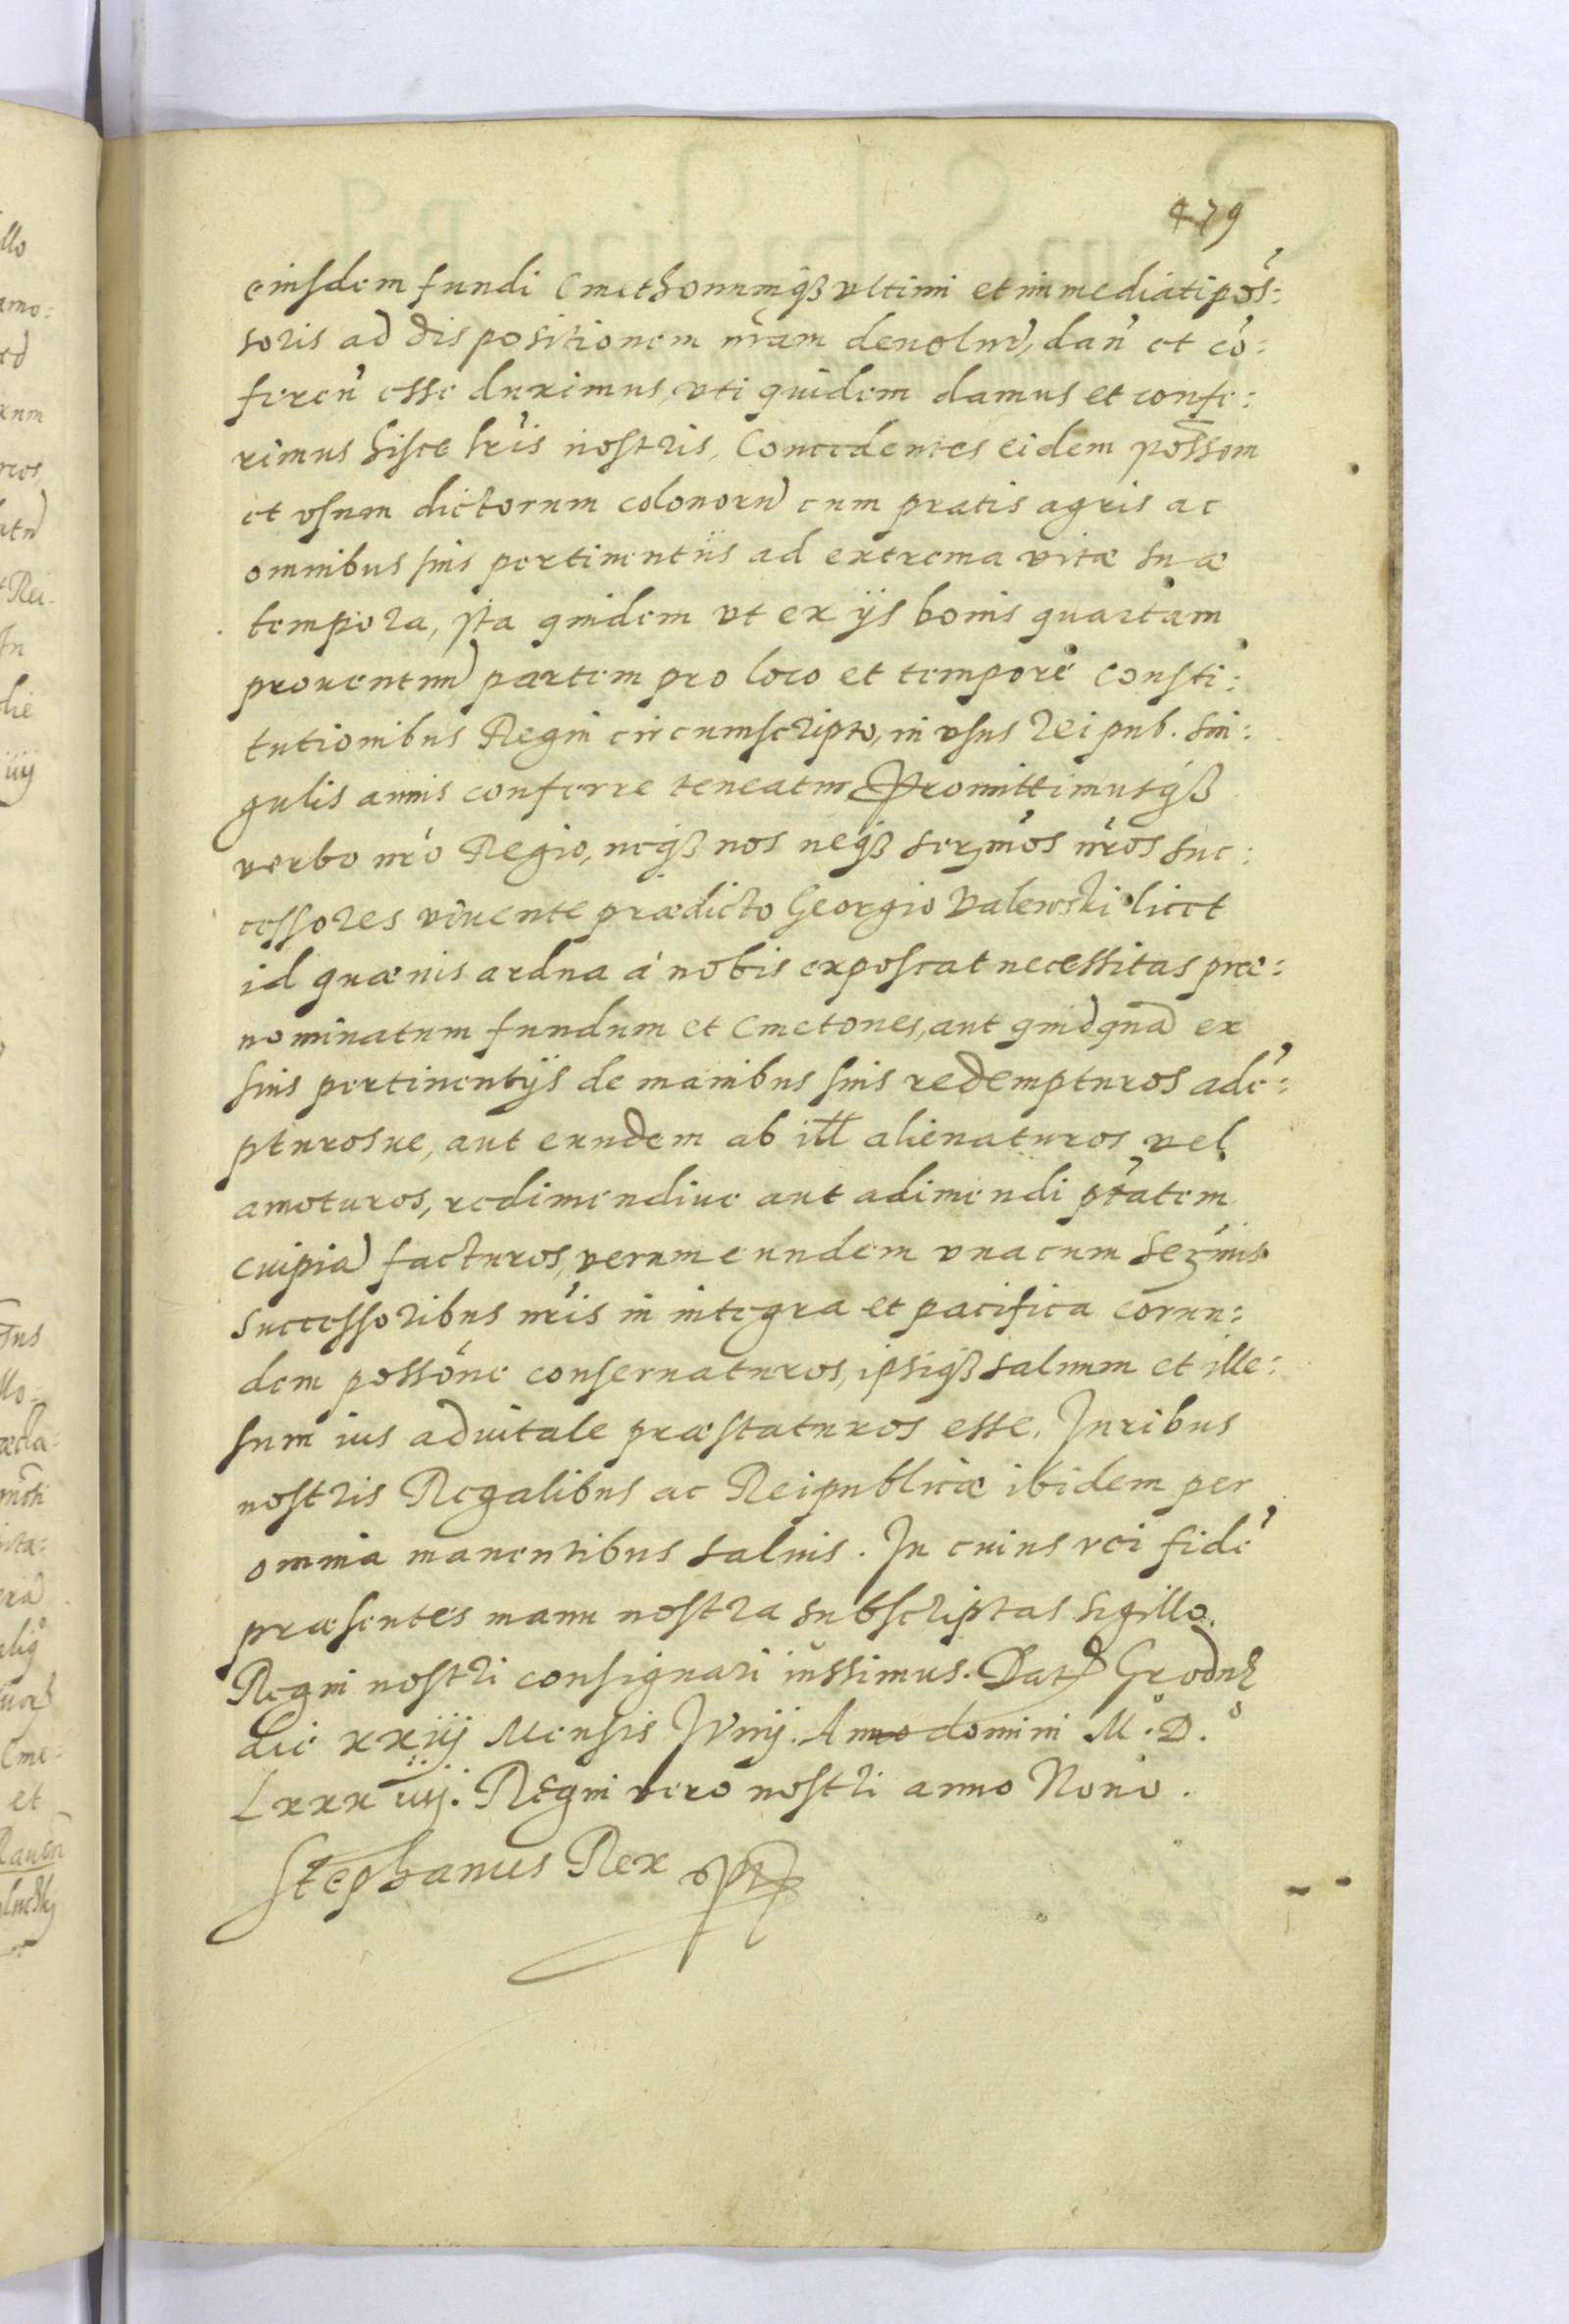 479
eiusdem fundi Cmethonumqꝫ vltimi et immediati pos̃:
soris ad dispositionem nr̃am deuolutũ, dañ et cõ:
fereñ esse duximus, vti quidem damus et confe:
rimus hisce lr̃is nostris, Concedentes eidem poss̃em
et vsum dictorum colonorũ cum pratis agris ac
omnibus suis pertinentiis ad extrema vitæ suæ
tempora, ita quidem vt ex ijs bonis quartam
prouentuũ partem pro loco et tempore consti:
tutionibus Regni circumscripto, in vsus Reipub. sin:
gulis annis conferre teneatur. Promittimusqꝫ
verbo nr̃o Regio, neqꝫ nos neqꝫ serm̃os nr̃os suc:
cessores viuente prædicto Georgio Valewski licet
id quæuis ardua à nobis exposcat necessitas præ:
nominatum fundum et Cmetones, aut quidquã ex
suis pertinentijs de manibus suis redempturos adẽ:
pturosue, aut eundem ab ill̃ alienaturos vel
amoturos, redimendiue aut adimendi ptãtem
cuipiã facturos, verum eundem vnacum serm̃is
successoribus nr̃is in integra et pacifica eorun:
dem possõne conseruaturos, ipsiqꝫ saluum et ille:
sum ius aduitale præstaturos esse. Iuribus
nostris Regalibus ac Reipublicæ ibidem per
omnia manentibus saluis. In cuius rei fidẽ
præsentes manu nostra subscriptas sigillo
Regni nostri consignari iussimus. Dat Grodnæ
die xxiij Mensis Iunij. Anno domini M.º D.º
Lxxxiiij. Regni vero nostri anno Nono.
Stephanus Rex